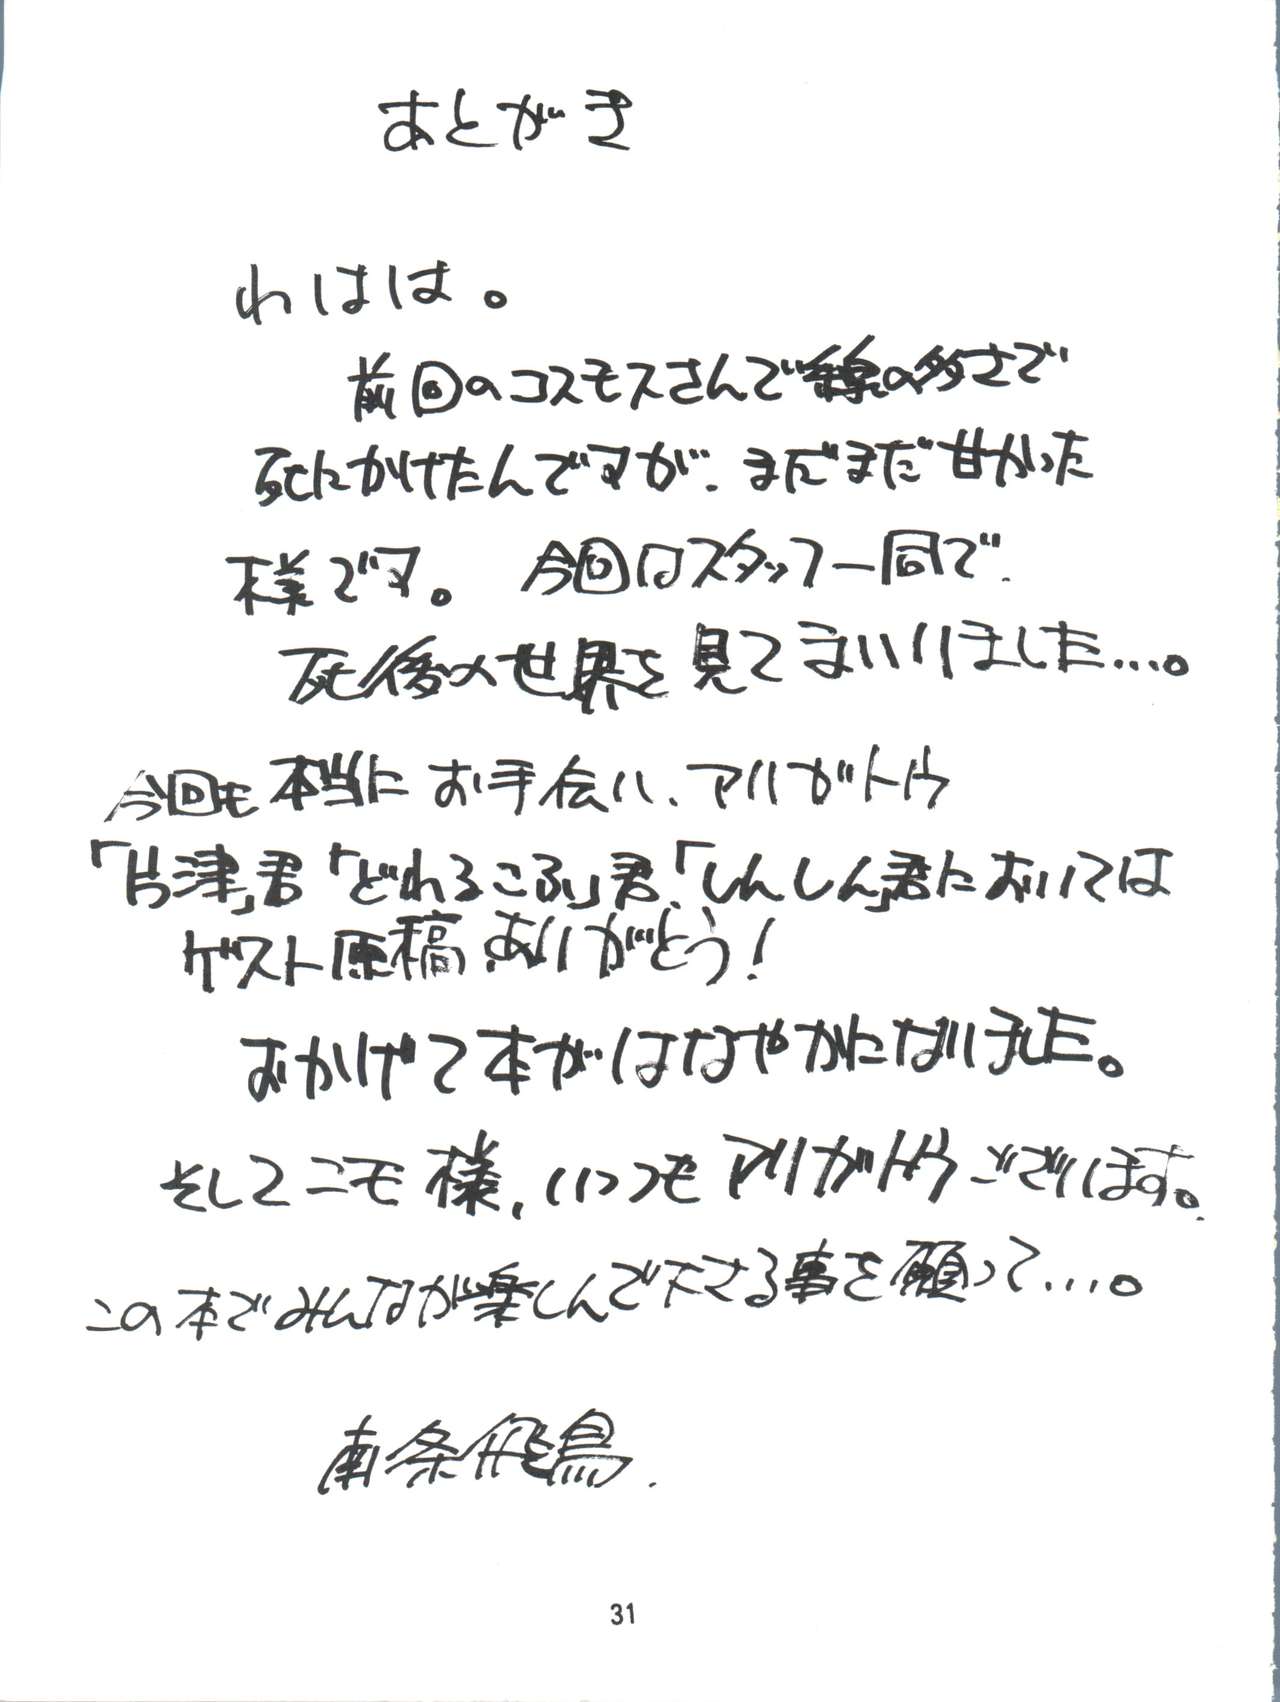 あとがき
わはは。
前回のコスモスさんで線の多さで
死にかけたんですが、まだまだ甘かった
様です。今回はスタッフ一同で、
死後の世界を見てまいりました…。
今回も本当にお手伝い、アリガトウ
「片津」君「どれろこふ」君、「しんしん」君においては
ゲスト原稿ありがとう！
おかげで本がはなやかになりました。
そしてニモ様、いつもアリガトウございます。
この本でみんなが楽しんで下さる事を願って…。
南条飛鳥.
31